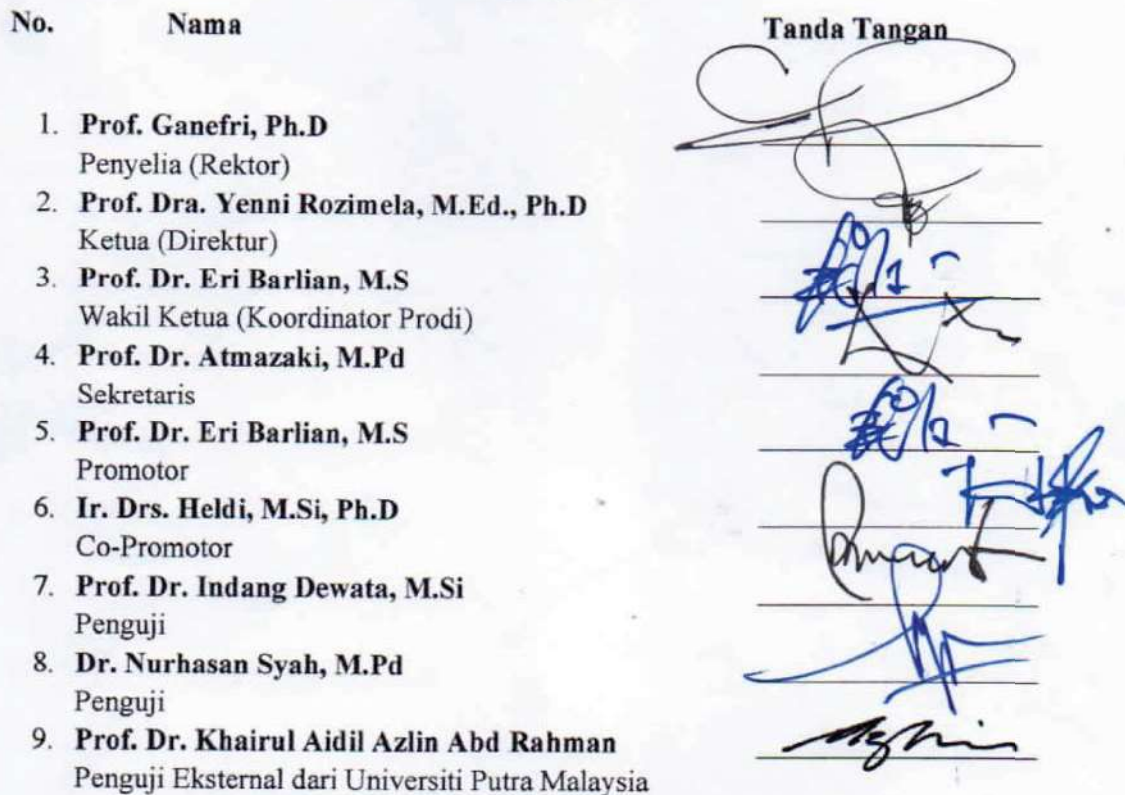 No. Nama Tanda Tangan
1. Prof. Ganefri, Ph.D
Penyelia (Rektor)
2. Prof. Dra. Yenni Rozimela, M.Ed., Ph.D
Ketua (Direktur)
3. Prof. Dr. Eri Barlian, M.S
Wakil Ketua (Koordinator Prodi)
4. Prof. Dr. Atmazaki, M.Pd
Sekretaris
5. Prof. Dr. Eri Barlian, M.S
Promotor
6. Ir. Drs. Heldi, M.Si, Ph.D
Co-Promotor
7. Prof. Dr. Indang Dewata, M.Si
Penguji
8. Dr. Nurhasan Syah, M.Pd
Penguji
9. Prof. Dr. Khairul Aidil Azlin Abd Rahman
Penguji Eksternal dari Universiti Putra Malaysia